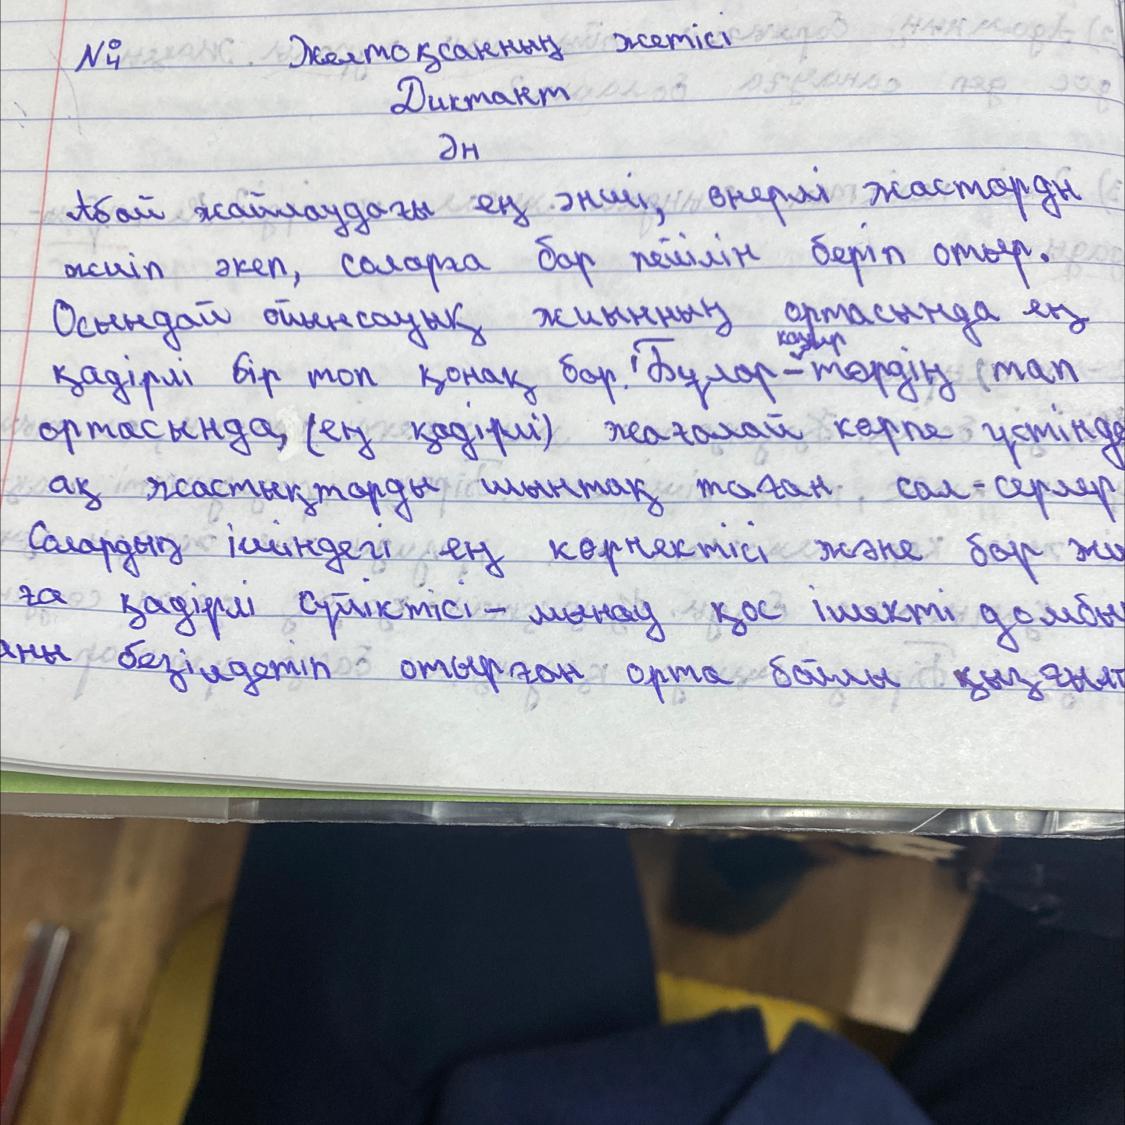 №4 Желтоқсанның жетісі
Диктант
Ән
Абай жайлаудағы ең әнші, өнерлі жастарды
жиіп әкеп, саларға бар пейілін беріп отыр.
Осындай ойынсауық жиынның ортасында ең
қадірлі бір топ қонақ бар. Бұлар - қазір төрдің (тап
ортасында, (ең қадірлі) жағалай көрпе үстінде
ақ жастықтарды шынтақ таған сал-серілер
Салардың ішіндегі ең көрнектісі және бар жи
ға қадірлі сүйіктісі - мынау қос ішекті домбы
аны безілдетіп отырған орта бойлы қызғылт